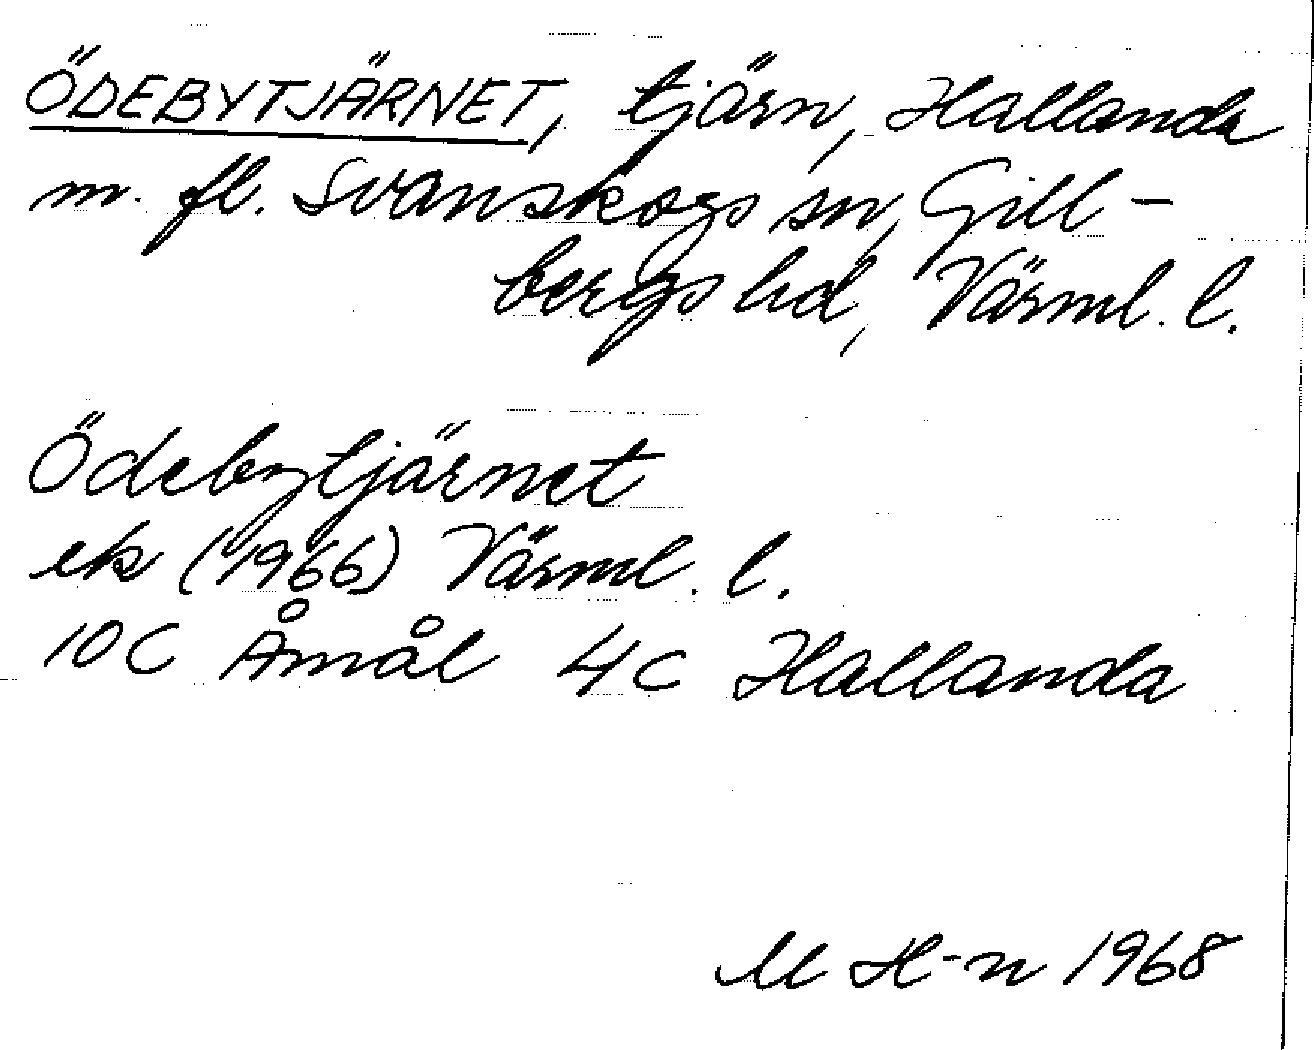 ÖDEBYTJÄRNET, tjärn, Hallanda
m. fl. Svanskogs sn, Gill-
bergs hd, Värml. l.
Ödebytjärnet
ek (1966) Värml. l.
10 C Åmål 4 c Hallanda
M H-n 1968